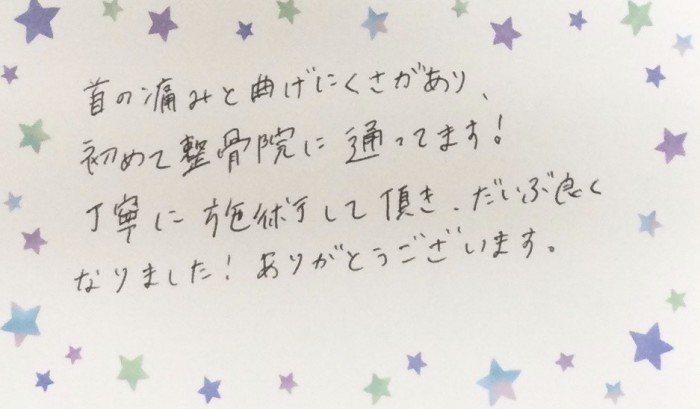 首の痛みと曲げにくさがあり、
初めて整骨院に通ってます!
丁寧に施術して頂き、だいぶ良く
なりました!ありがとうございます。